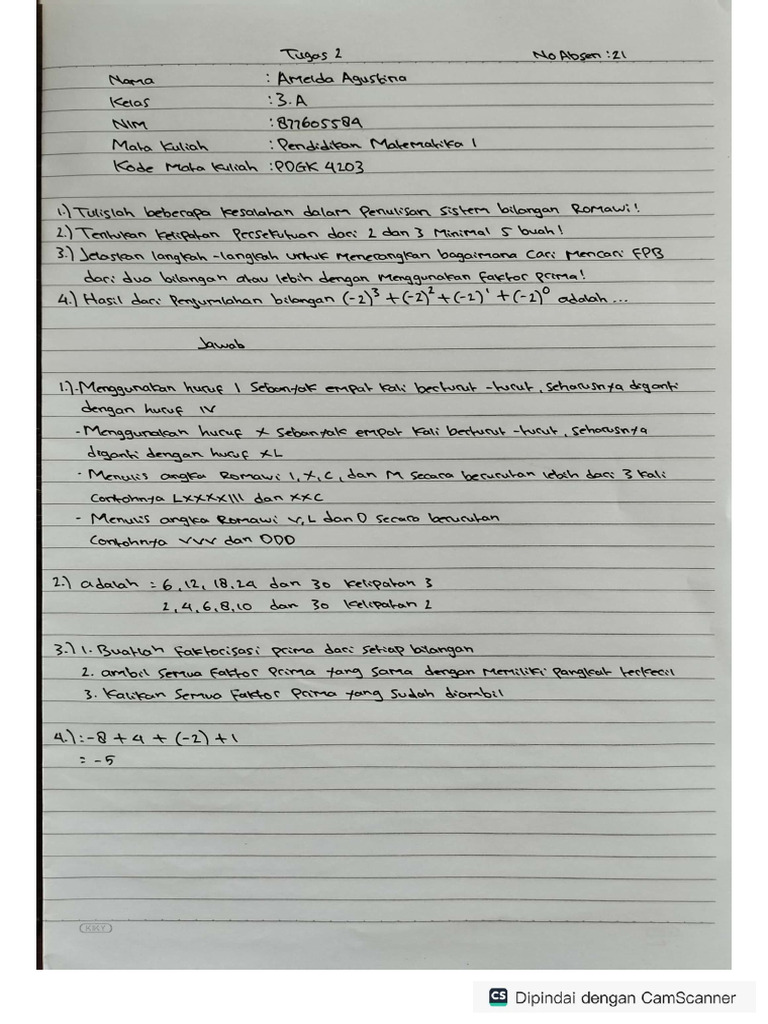 Tugas 2 No Absen : 21
Nama : Amelda Agustina
Kelas : 3.A
NIM : 877605584
Mata Kuliah : Pendidikan Matematika 1
Kode Mata Kuliah : PDGK 4203
1.) Tulislah beberapa kesalahan dalam Penulisan sistem bilangan Romawi!
2.) Tentukan Kelipatan Persekutuan dari 2 dan 3 Minimal 5 buah!
3.) Jelaskan langkah-langkah untuk Menerangkan bagaimana Cari Mencari FPB
dari dua bilangan atau lebih dengan Menggunakan faktor prima!
4.) Hasil dari Penjumlahan bilangan (-2)³ + (-2)² + (-2)¹ + (-2)⁰ adalah ...
Jawab
1.) - Menggunakan huruf I Sebanyak empat kali berturut-turut, seharusnya diganti
dengan huruf IV
- Menggunakan huruf X Sebanyak empat kali berturut-turut, seharusnya
diganti dengan huruf XL
- Menulis angka Romawi I, X, C, dan M secara berurutan lebih dari 3 kali
Contohnya LXXXXIII dan XXC
- Menulis angka Romawi V, L dan D secara berurutan
Contohnya VVV dan DDD
2.) adalah = 6, 12, 18, 24 dan 30 kelipatan 3
2, 4, 6, 8, 10 dan 30 kelipatan 2
3.) 1. Buatlah faktorisasi prima dari setiap bilangan
2. ambil semua faktor Prima yang sama dengan Memiliki pangkat terkecil
3. Kalikan Semua faktor Prima yang sudah diambil
4.) : -8 + 4 + (-2) + 1
= -5
KKY
CS Dipindai dengan CamScanner